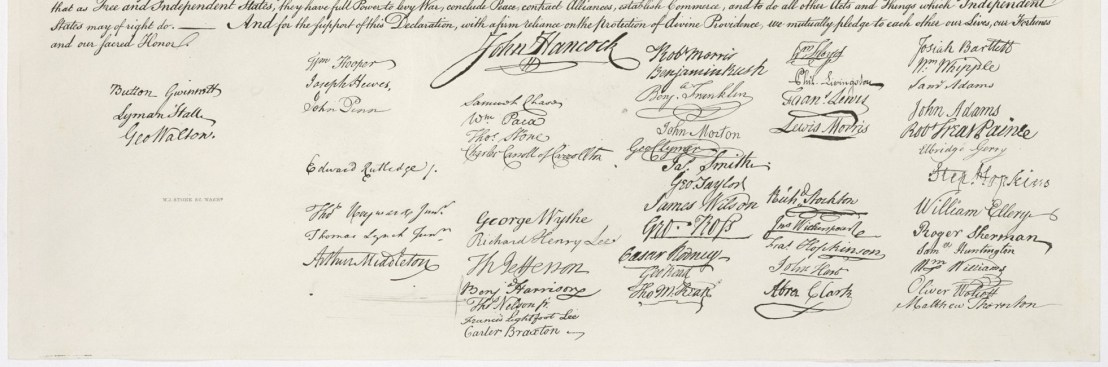 that as Free and Independent States, they have full Power to levy War, conclude Peace, contract Alliances, establish Commerce, and to do all other Acts and Things which Independent
States may of right do. — And for the support of this Declaration, with a firm reliance on the protection of divine Providence, we mutually pledge to each other our Lives, our Fortunes
and our sacred Honor.
Button Gwinnett
Lyman Hall
Geo Walton.
W. J. STONE SC WASHN
Wm Hooper
Joseph Hewes,
John Penn
Edward Rutledge /.
Thos Heyward Junr.
Thomas Lynch Junr.
Arthur Middleton
John Hancock
Samuel Chase
Wm Paca
Thos Stone
Charles Carroll of Carrollton
George Wythe
Richard Henry Lee
Th Jefferson
Benj Harrison
Thos Nelson jr
Francis Lightfoot Lee
Carter Braxton
Robt Morris
Benjamin Rush
Benj Franklin
John Morton
Geo Clymer
Jas Smith
Geo. Taylor
James Wilson
Geo. Ross
Caesar Rodney
Geo Read
Tho M:Kean
Wm Floyd
Phil. Livingston
Frans. Lewis
Lewis Morris
Richd Stockton
Jno Witherspoon
Fras. Hopkinson
John Hart
Abra Clark
Josiah Bartlett
Wm Whipple
Saml Adams
John Adams
Robt Treat Paine
Elbridge Gerry
Step. Hopkins
William Ellery
Roger Sherman
Saml Huntington
Wm Williams
Oliver Wolcott
Matthew Thornton